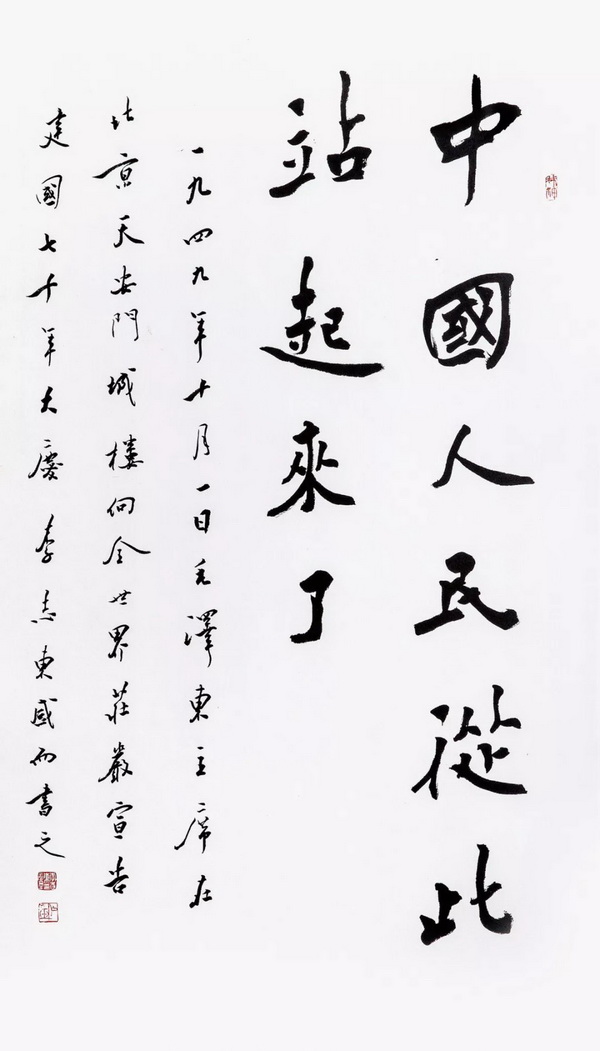 中國人民從此
站起來了
一九四九年十月一日毛澤東主席在
北京天安門城楼向全世界莊嚴宣告
建國七十年大慶李志東感而書之